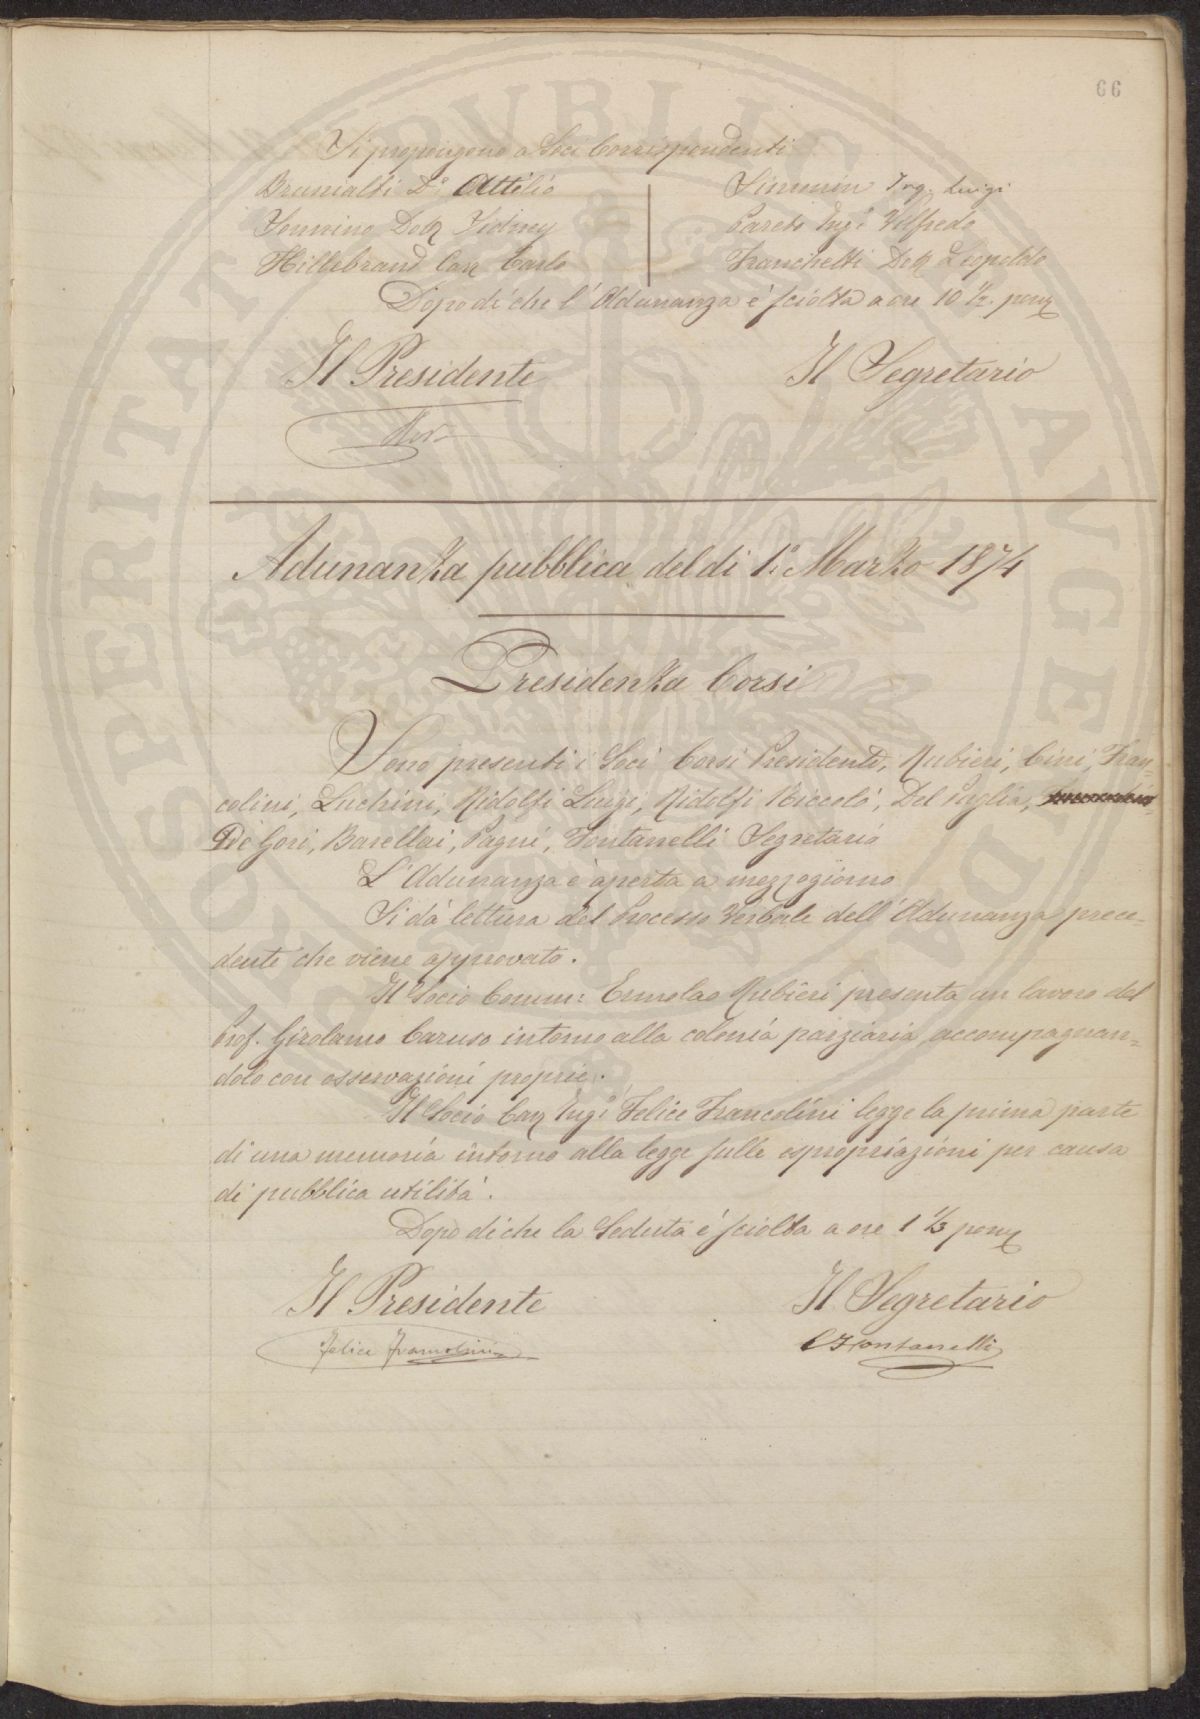 66
Si propongono a Soci Corrispondenti
Brunialti D.r Attilio
Simonin Ing. Luigi
Sonnino Dott. Sidney
Pareto Ing.e Vilfredo
Hillebrand Cav. Carlo
Franchetti Dott. Leopoldo
Dopo di che l'Adunanza è sciolta a ore 10 1/2 pom.
Il Presidente
Il Segretario
Adunanza pubblica del di 1.° Marzo 1874
Presidenza Corsi
Sono presenti i Soci Corsi Presidente, Rubieri, Cini, Fran=
colini, Luchini, Ridolfi Luigi, Ridolfi Niccolò, Del Puglia,
De Gori, Barellai, Pagni, Fontanelli Segretario
L'Adunanza è aperta a mezzogiorno
Si dà lettura del Processo Verbale dell'Adunanza prece=
dente che viene approvato.
Il Socio Comm: Ermolao Rubieri presenta un lavoro del
Prof. Girolamo Caruso intorno alla colonìa parziaria accompagnan=
dolo con osservazioni proprie.
Il Socio Cav. Ing.e Felice Francolini legge la prima parte
di una memoria intorno alla legge sulle espropriazioni per causa
di pubblica utilità.
Dopo di che la Seduta è sciolta a ore 1 1/3 pom.
Il Presidente
Il Segretario
Felice Francolini
C Fontanelli